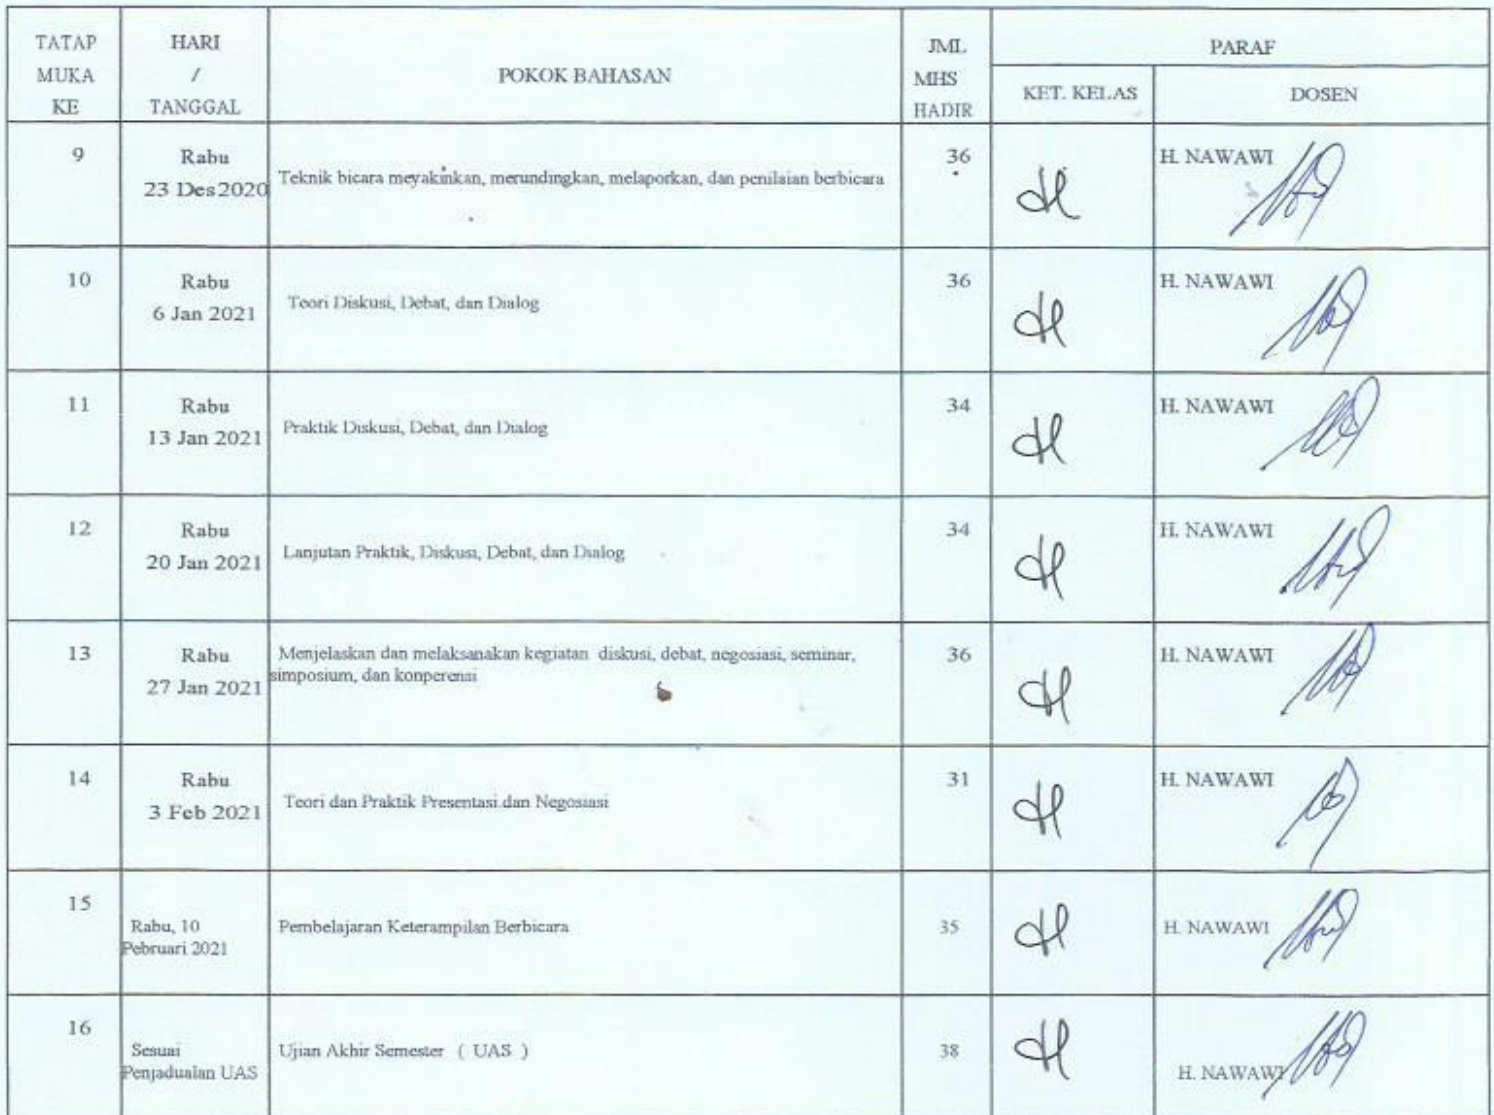 TATAP MUKA KE
HARI / TANGGAL
POKOK BAHASAN
JML MHS HADIR
PARAF
KET. KELAS
DOSEN
9
Rabu
23 Des 2020
Teknik bicara meyakinkan, merundingkan, melaporkan, dan penilaian berbicara
36
H. NAWAWI
10
Rabu
6 Jan 2021
Teori Diskusi, Debat, dan Dialog
36
H. NAWAWI
11
Rabu
13 Jan 2021
Praktik Diskusi, Debat, dan Dialog
34
H. NAWAWI
12
Rabu
20 Jan 2021
Lanjutan Praktik, Diskusi, Debat, dan Dialog
34
H. NAWAWI
13
Rabu
27 Jan 2021
Menjelaskan dan melaksanakan kegiatan diskusi, debat, negosiasi, seminar,
simposium, dan konperensi
36
H. NAWAWI
14
Rabu
3 Feb 2021
Teori dan Praktik Presentasi dan Negosiasi
31
H. NAWAWI
15
Rabu, 10
Pebruari 2021
Pembelajaran Keterampilan Berbicara
35
H. NAWAWI
16
Sesuai
Penjadualan UAS
Ujian Akhir Semester ( UAS )
38
H. NAWAWI